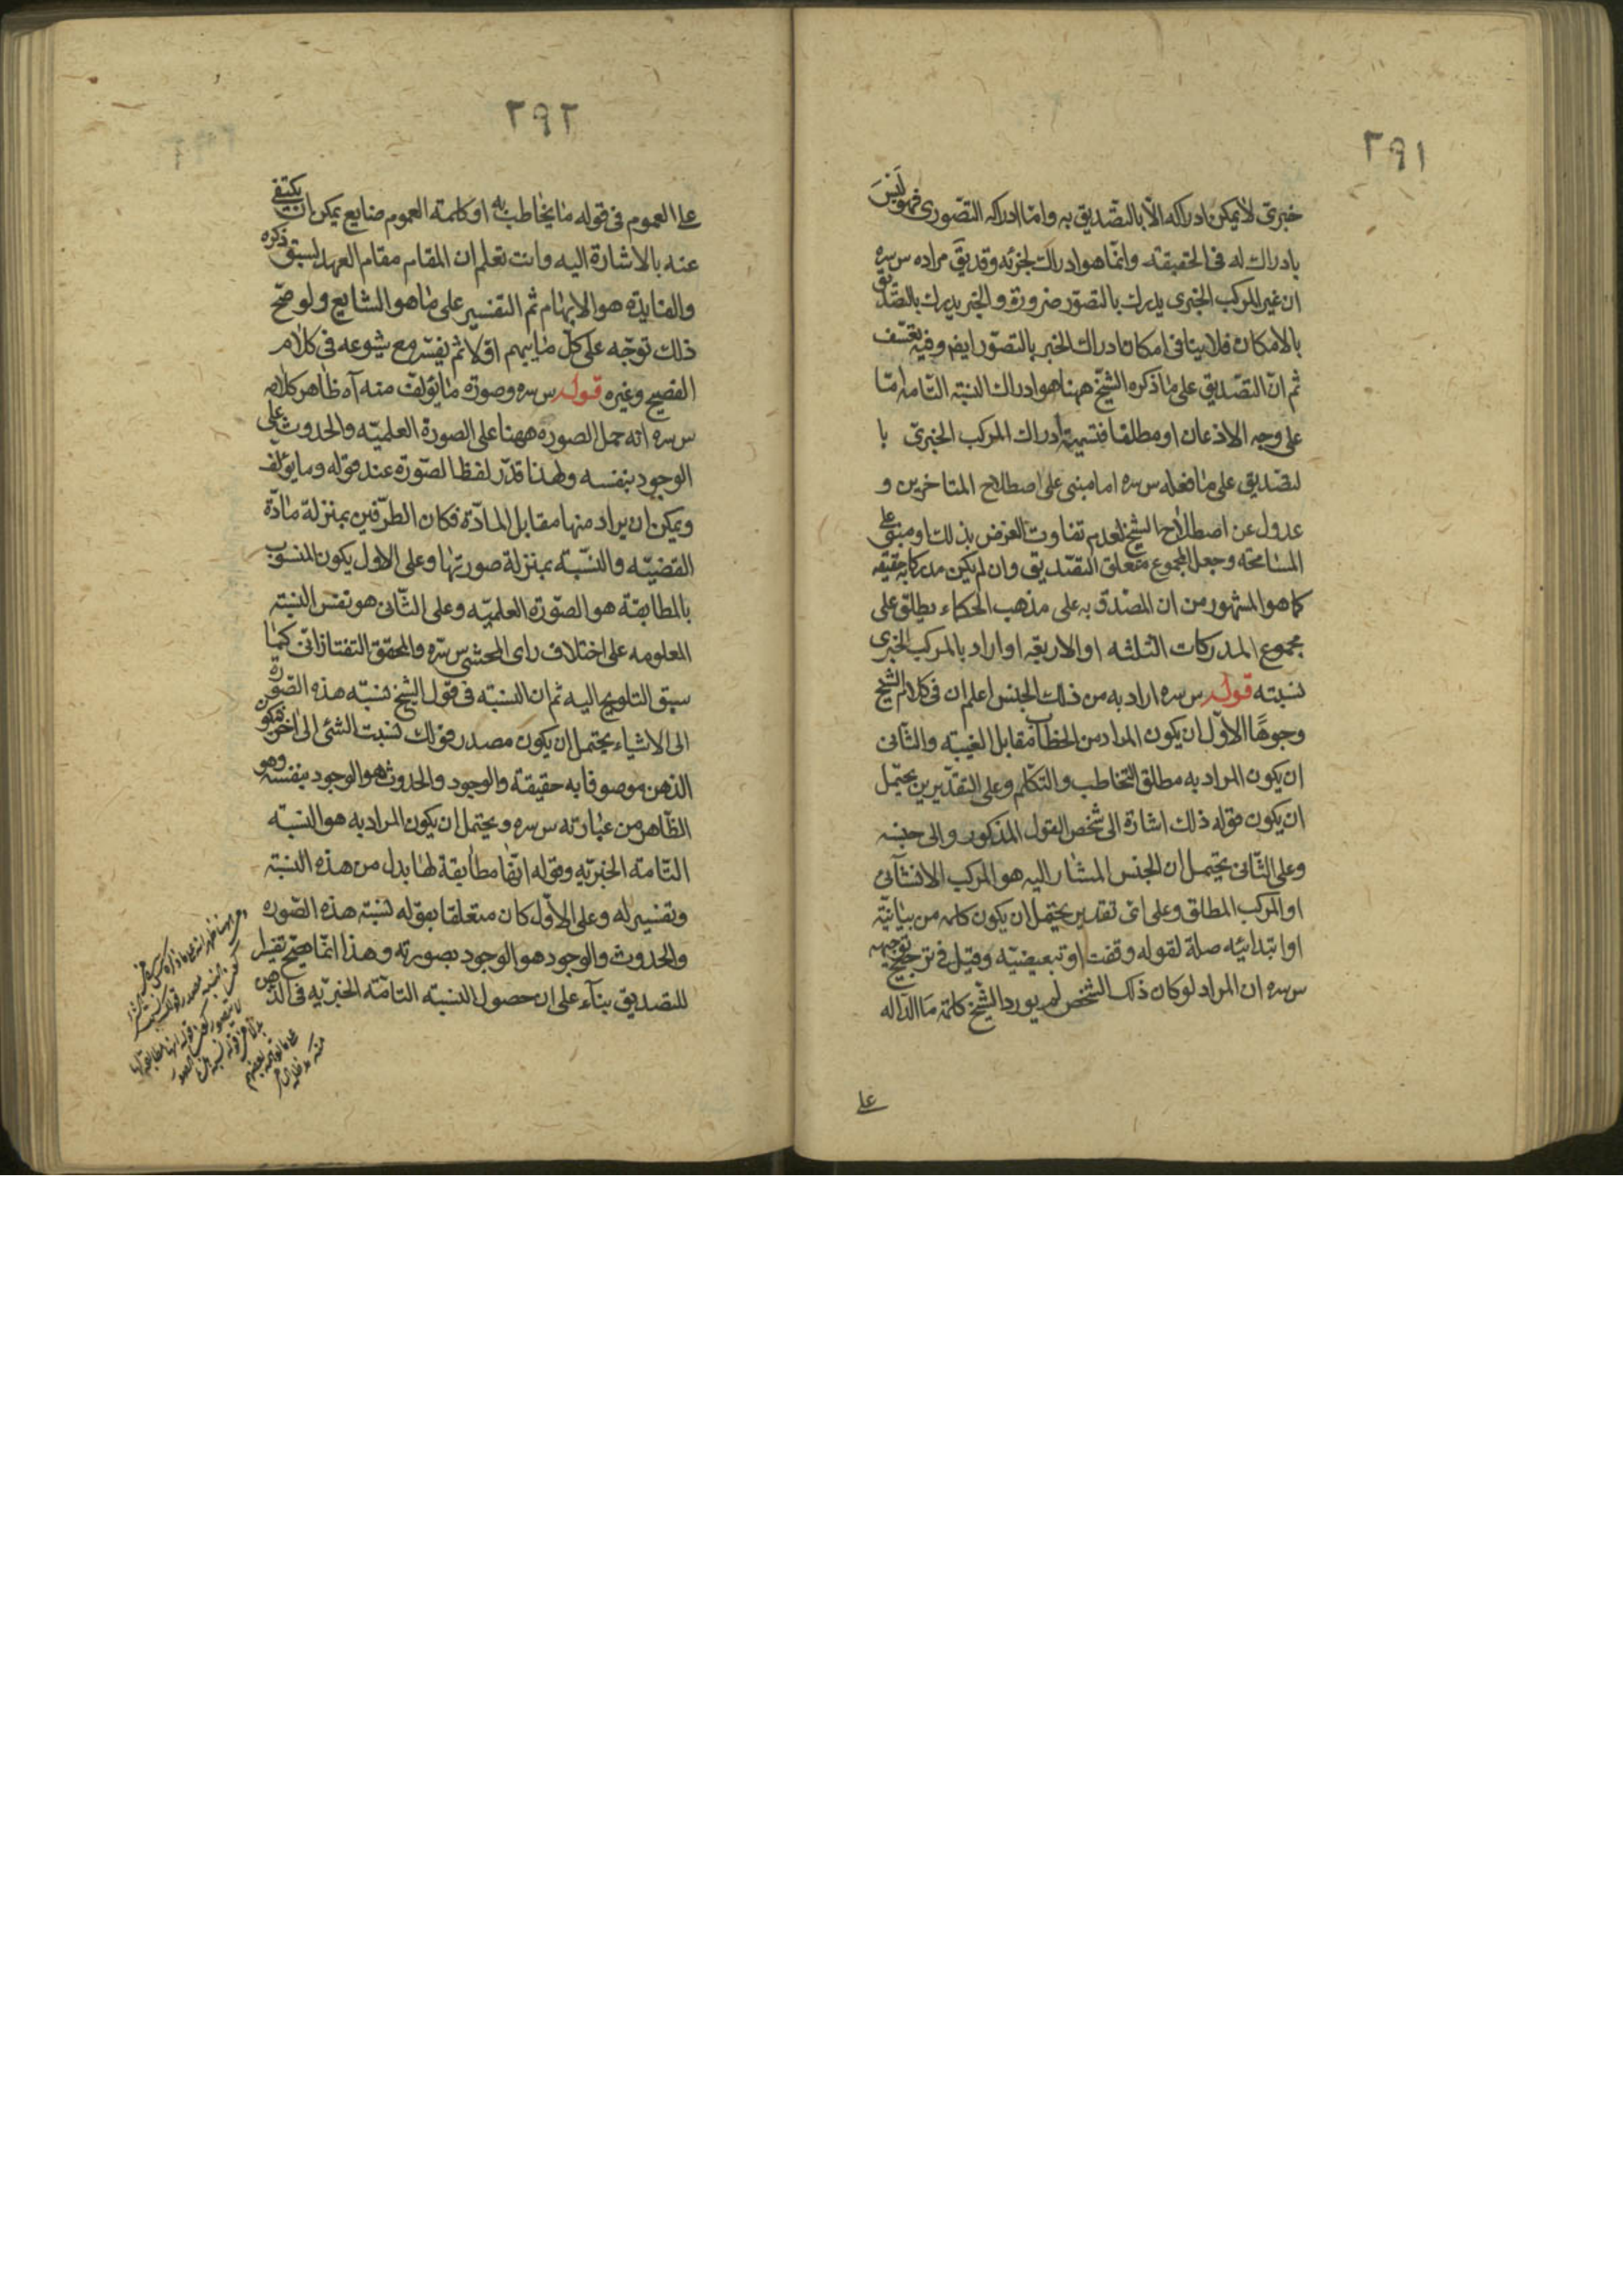 ٢٩١
خبرى لا يمكن ادراكه الا بالتصديق به واما ادراكه التصورى فهو ليس
بادراك له فى الحقيقة وانما هو ادراك لجزئه وقد يق مراده س سره
ان غير المركب الخبرى يدرك بالتصور ضرورة والخبر يدرك بالتصديق
بالامكان فلا ينافى امكان ادراك الخبر بالتصور ايضم وفيه تعسف
ثم ان التصديق على ما ذكره الشيخ ههنا هو ادراك النسبة التامه اما
على وجه الاذعان او مطلقا فتسمية ادراك المركب الخبرى با
لتصديق على ما فعله س سره اما مبنى على اصطلاح المتاخرين و
عدول عن اصطلاح الشيخ لعدم تفاوت الغرض بذلك او مبنى على
المسامحه وجعل المجموع متعلق التصديق وان لم يكن مدركا به حقيقه
كما هو المشهور من ان المصدق به على مذهب الحكماء يطلق على
مجموع المدركات الثلثه او الاربعه او اراد بالمركب الخبرى
نسبته قوله س سره اراد به من ذلك الجنس اعلم ان فى كلام الشيخ
وجوها الاول ان يكون المراد من الخطاب مقابل الغيبه والثانى
ان يكون المراد به مطلق التخاطب والتكلم وعلى التقديرين يحتمل
ان يكون قوله ذلك اشارة الى شخص القول المذكور والى جنسه
وعلى الثانى يحتمل ان الجنس المشار اليه هو المركب الانشائى
او المركب المطلق وعلى اى تقدير يحتمل ان يكون كلمه من بيانية
او ابتدائيه صلة لقوله وقفت او تبعيضيه وقيل فى ترجيح توجيهه
س سره ان المراد لو كان ذلك الشخص لم يورد الشيخ كلمة ما الداله
على
٢٩٢
على العموم فى قوله ما يخاطب به او كلمته العموم ضايع يمكن ان يكتفى
عنه بالاشارة اليه وانت تعلم ان المقام مقام العهد لسبق ذكره
والفايدة هو الابهام ثم التفسير على ما هو الشايع ولو صح
ذلك توجه على كل ما يبهم اولا ثم يفسر مع شيوعه فى كلام
الفصيح وغيره قوله س سره وصورة ما يؤلف منه آه ظاهر كلامه
س سره انه حمل الصوره ههنا على الصورة العلميه والحدوث على
الوجود بنفسه ولهذا قدر لفظ الصورة عند قوله وما يؤلف
ويمكن ان يراد منها مقابل المادة فكان الطرفين بمنزلة مادة
القضيه والنسبة بمنزلة صورتها وعلى الاول يكون المنسوب
بالمطابقة هو الصورة العلميه وعلى الثانى هو نفس النسبة
المعلومه على اختلاف راى المحشى س سره والمحقق التفتازانى كما
سبق التلويح اليه ثم ان النسبته فى قول الشيخ نسبته هذه الصورة
الى الاشياء يحتمل ان يكون مصدر قولك نسبت الشئ الى اخر فيكون
الذهن موصوفا به حقيقة والوجود والحدوث هو الوجود بنفسه وهو
الظاهر من عبارته س سره ويحتمل ان يكون المراد به هو النسبته
التامة الخبريه وقوله انها مطابقة لها بدل من هذه النسبة
وتفسير له وعلى الاول كان متعلقا بقوله نسبة هذه الصوره
والحدوث والوجود هو الوجود بصورته وهذا انما يصح تفسيرا
للتصديق بناء على ان حصول النسبته التامة الخبريه فى الذهن